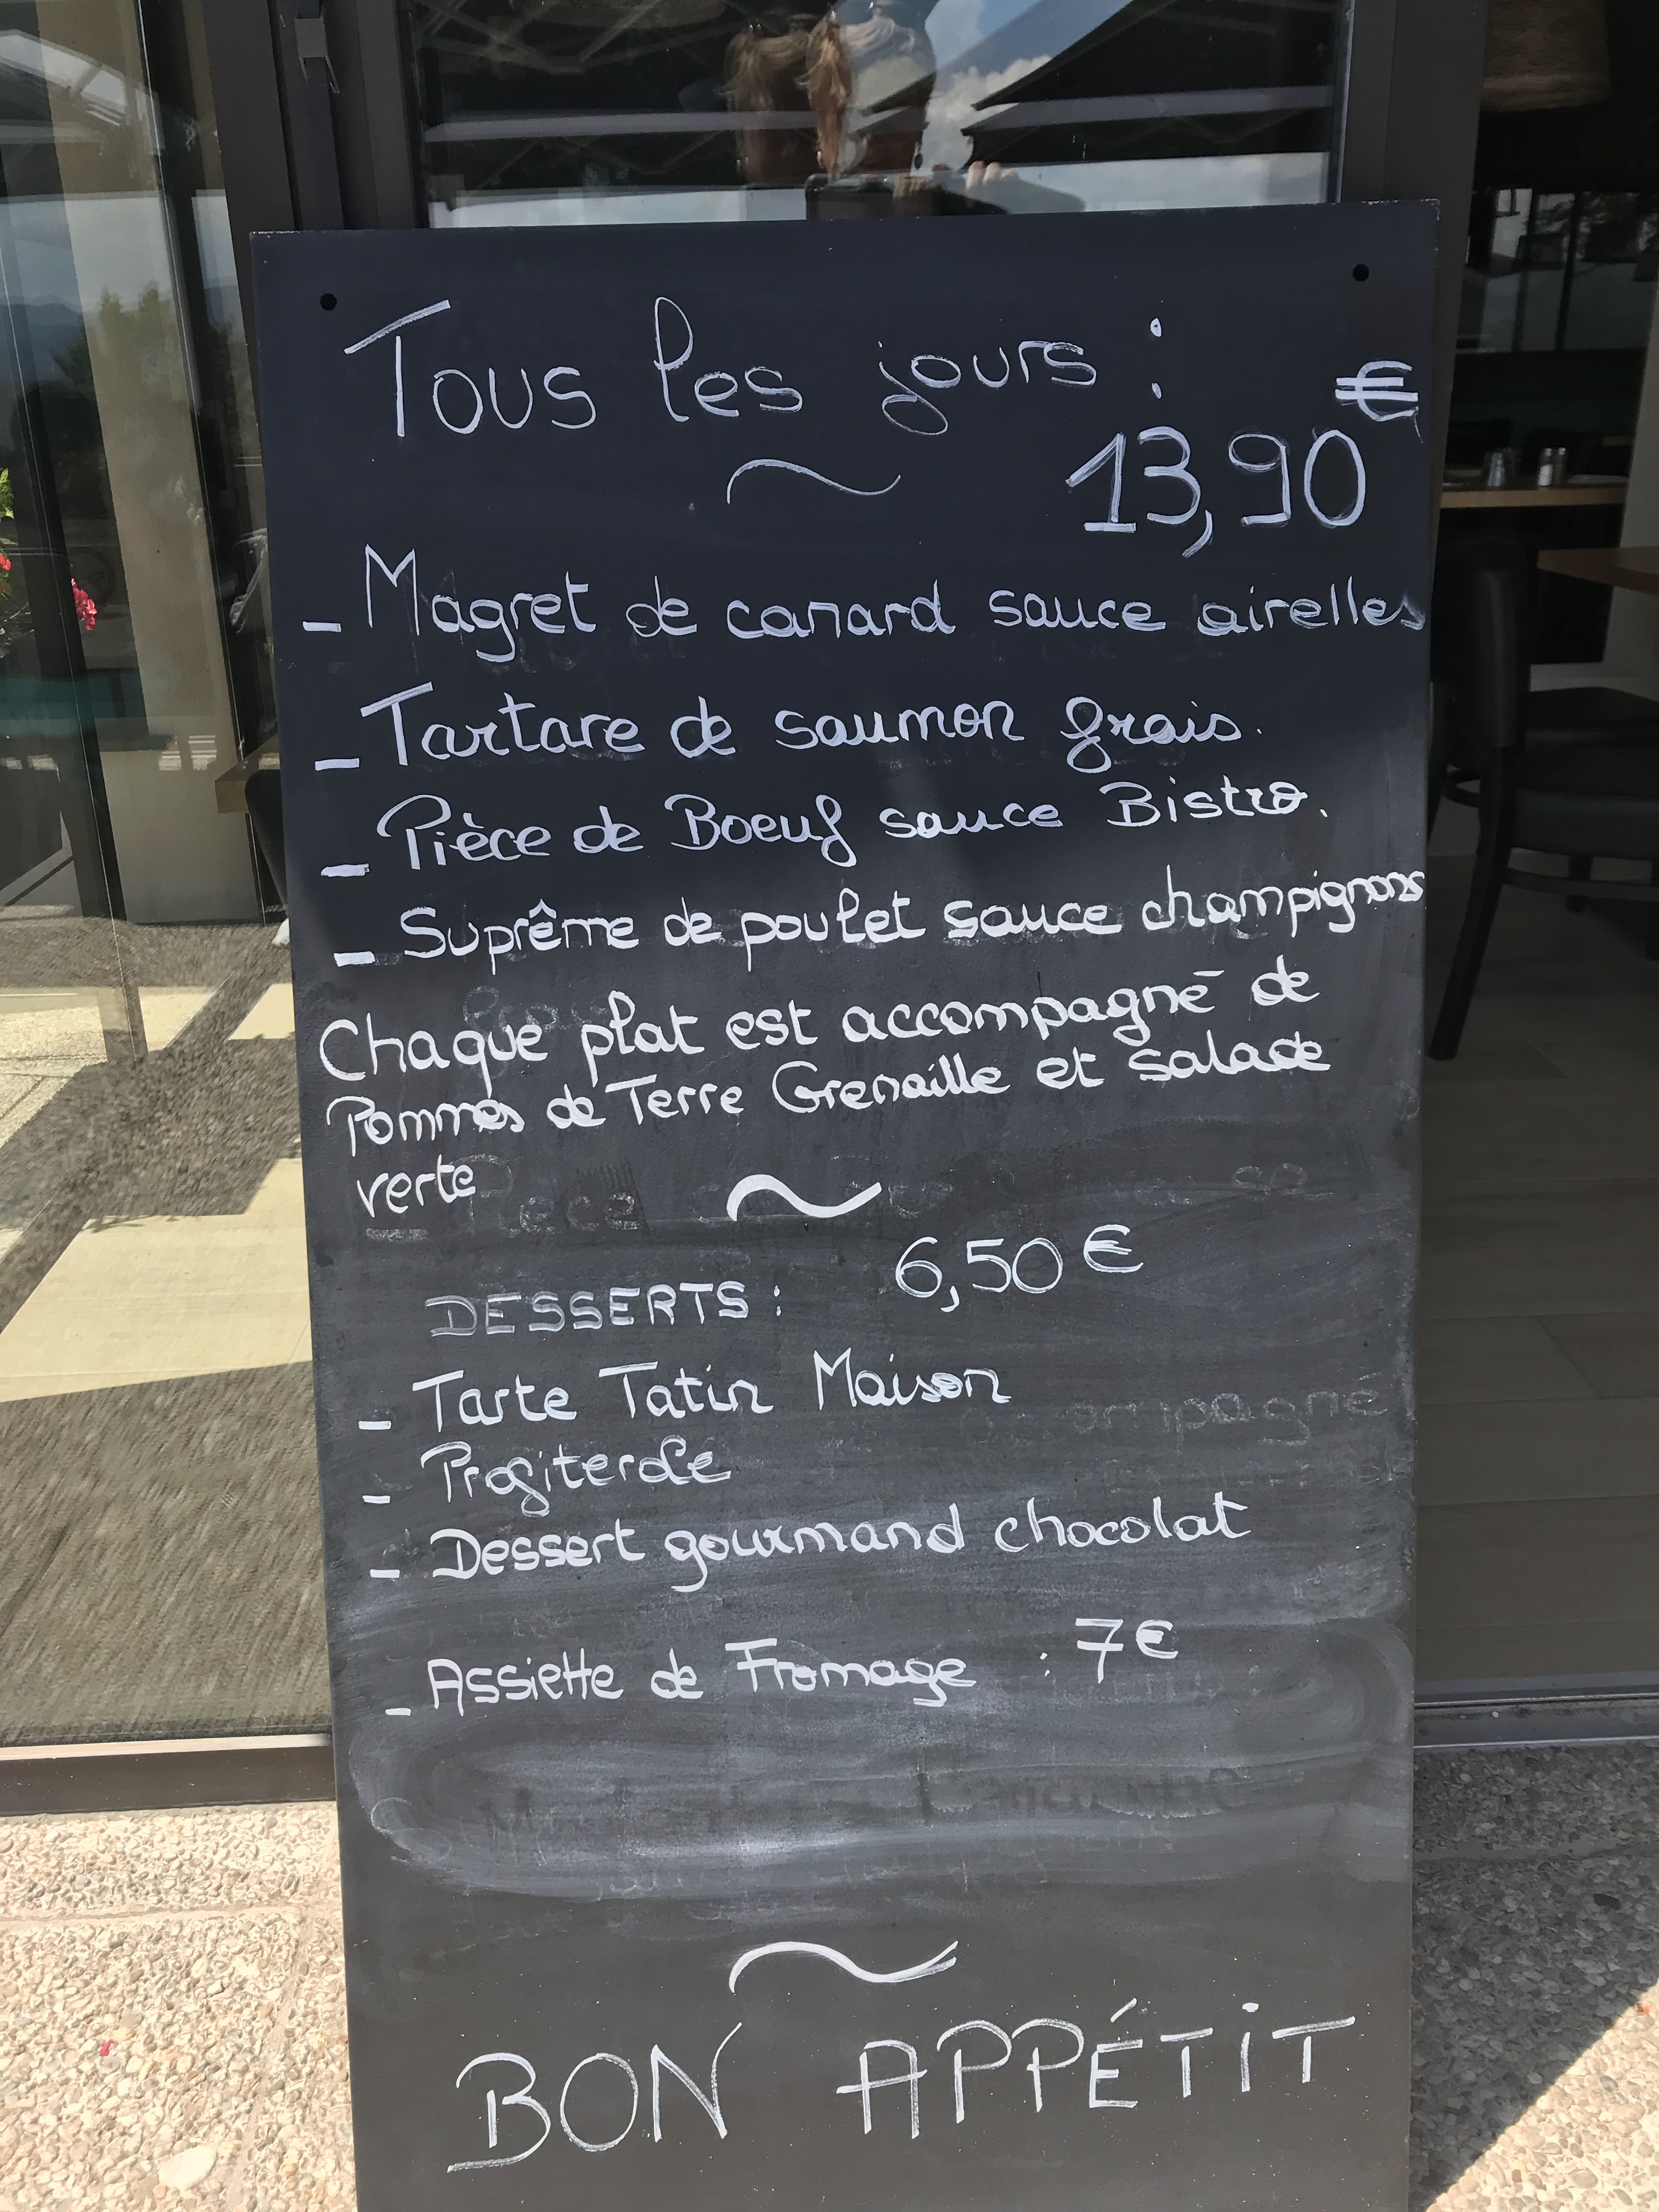 Tous les jours :
13,90€
- Magret de canard sauce airelles
- Tartare de saumon frais.
- Pièce de Boeuf sauce Bistro.
- Suprême de poulet sauce champignons
Chaque plat est accompagné de
Pommes de Terre Grenaille et salade
verte
DESSERTS : 6,50€
- Tarte Tatin Maison
- Profiterole
- Dessert gourmand chocolat
- Assiette de Fromage : 7€
BON APPÉTIT